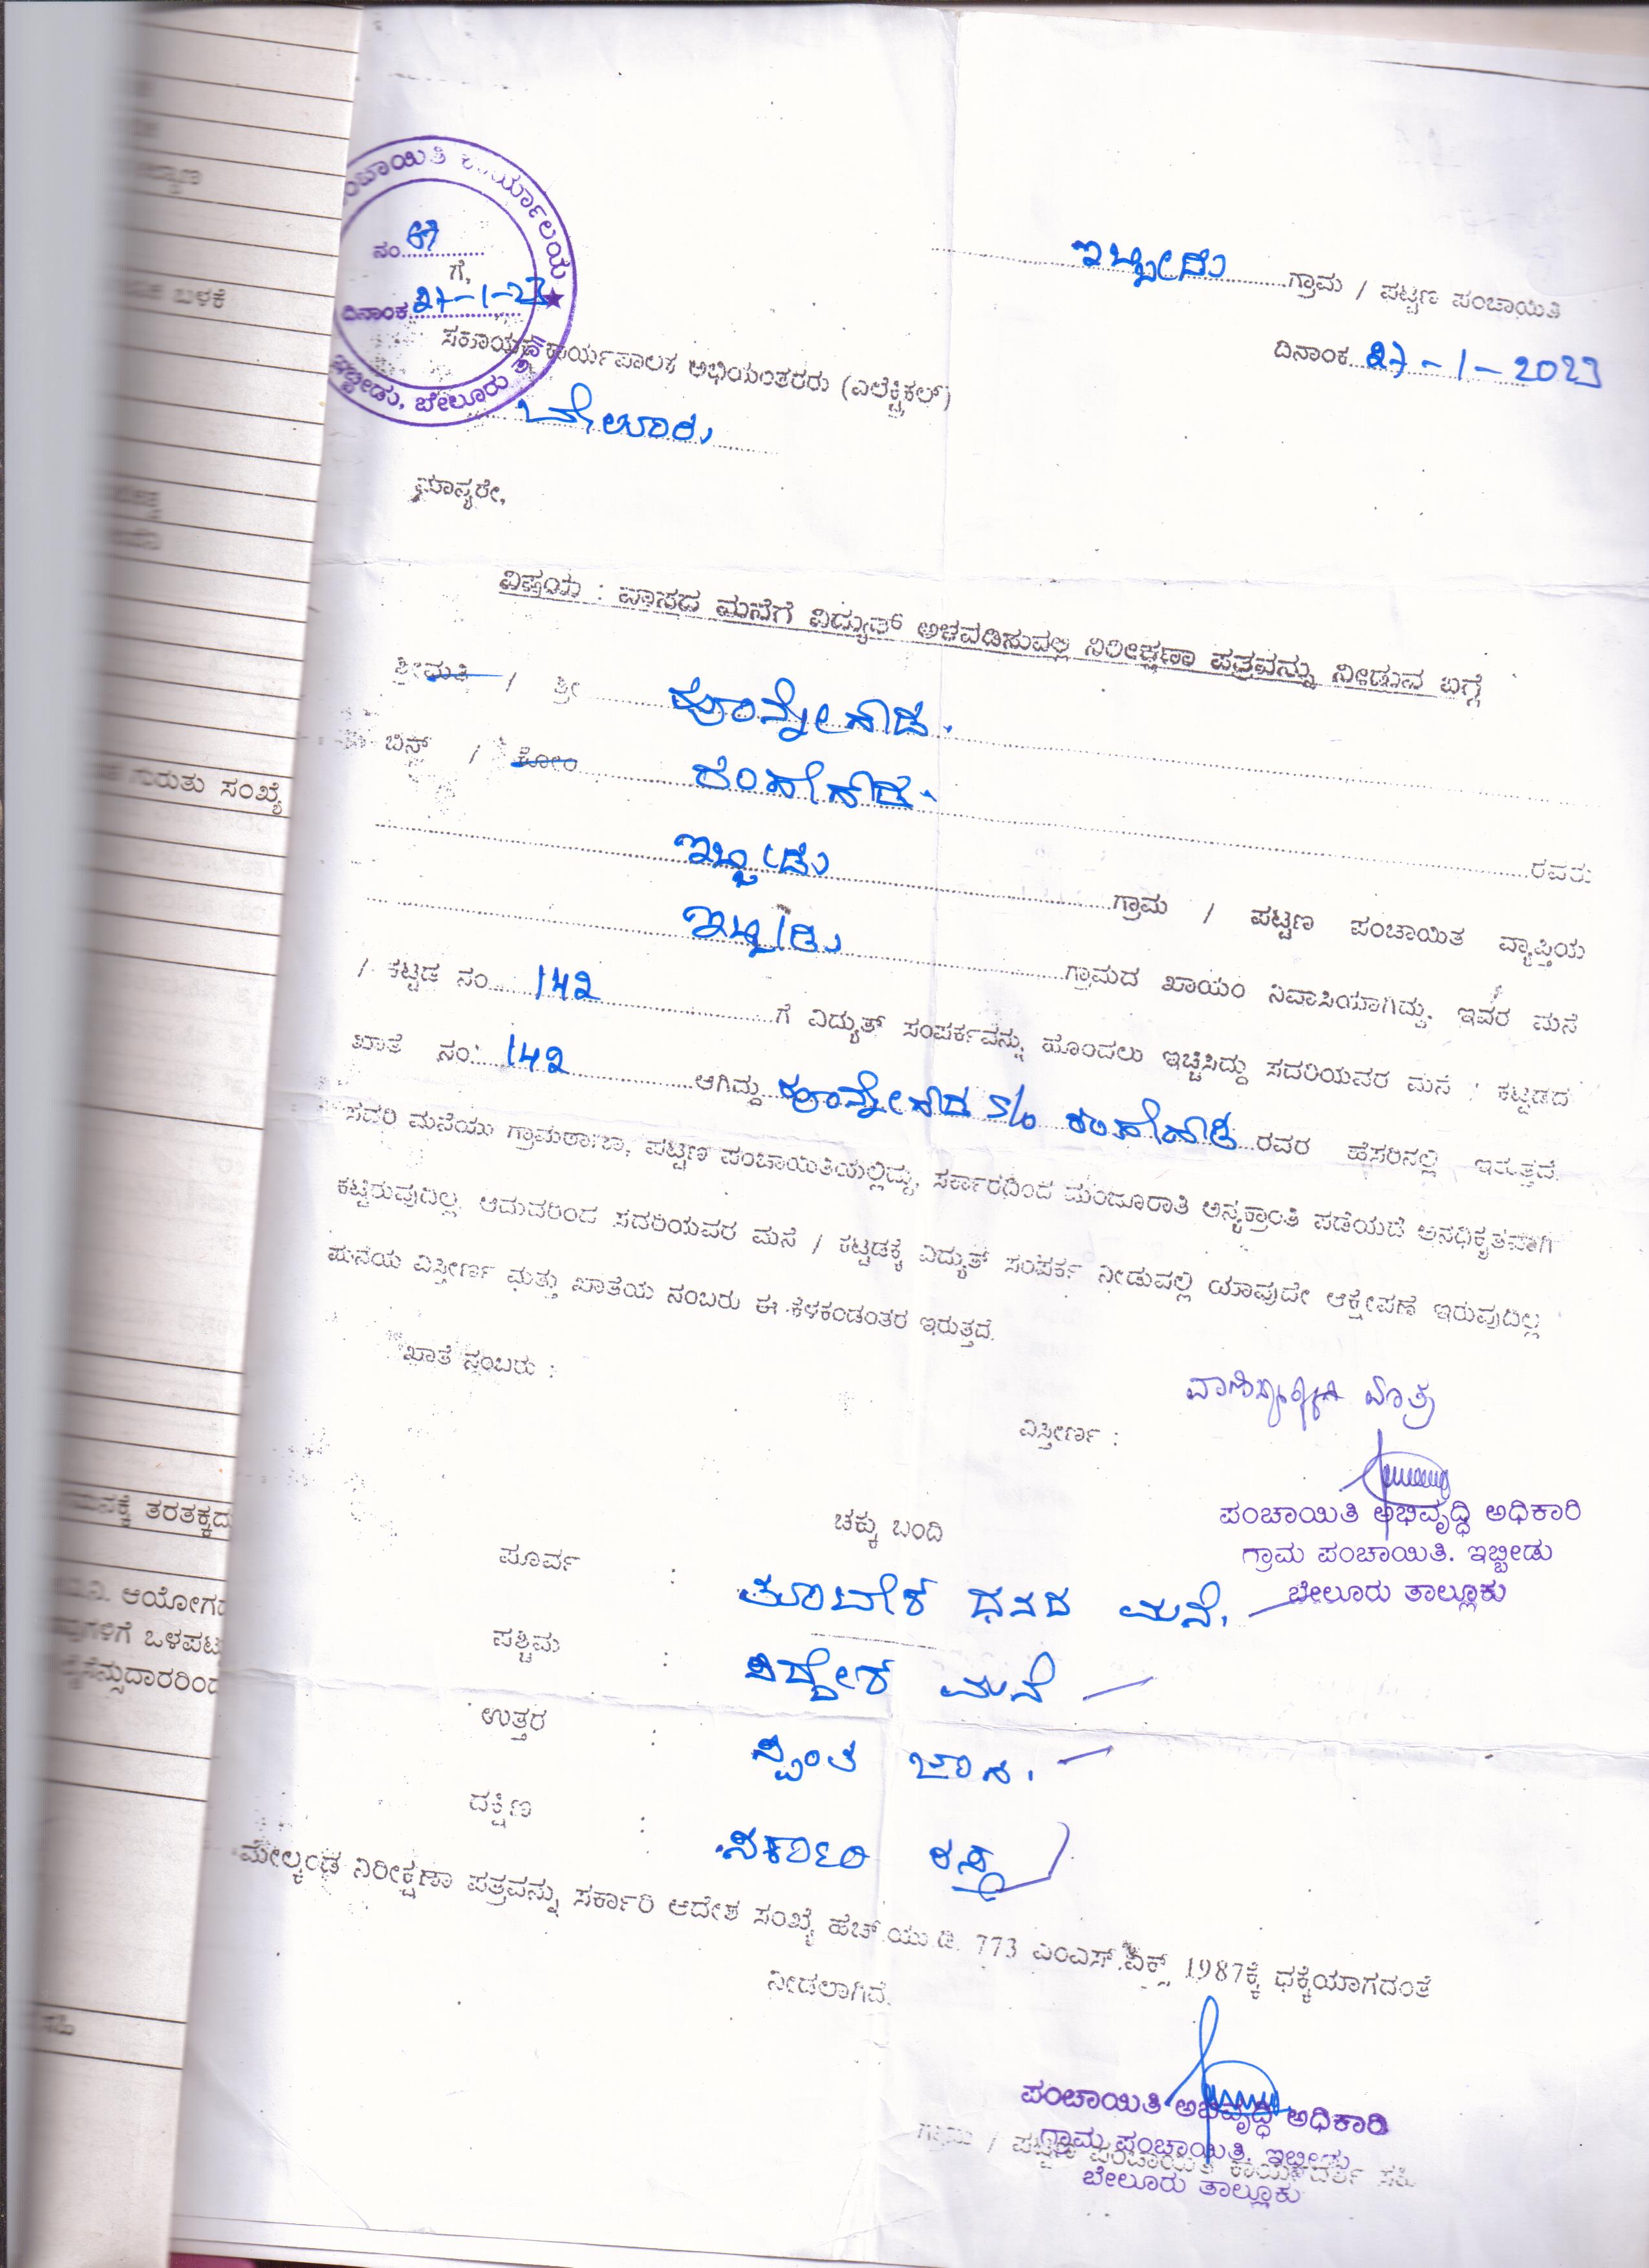 ಪಂಚಾಯಿತಿ ಕಾರ್ಯಾಲಯ
ನಂ. 67
ದಿನಾಂಕ 27-1-23
ಇಬ್ಬೀಡು, ಬೇಲೂರು ತಾ||
ಇಬ್ಬೀಡು ಗ್ರಾಮ / ಪಟ್ಟಣ ಪಂಚಾಯಿತಿ
ದಿನಾಂಕ 27-1-2023
ಗೆ,
ಸಹಾಯಕ ಕಾರ್ಯಪಾಲಕ ಅಭಿಯಂತರರು (ಎಲೆಕ್ಟ್ರಿಕಲ್)
ಬೇಲೂರು
ಮಾನ್ಯರೇ,
ವಿಷಯ : ವಾಸದ ಮನೆಗೆ ವಿದ್ಯುತ್ ಅಳವಡಿಸುವಲ್ಲಿ ನಿರೀಕ್ಷಣಾ ಪತ್ರವನ್ನು ನೀಡುವ ಬಗ್ಗೆ
ಶ್ರೀಮತಿ / ಶ್ರೀ ಹೊನ್ನೇಗೌಡ.
ಬಿನ್ / ಕೋಂ ರವರು
ಇಬ್ಬೀಡು ಗ್ರಾಮ / ಪಟ್ಟಣ ಪಂಚಾಯಿತ ವ್ಯಾಪ್ತಿಯ
ಇಬ್ಬೀಡು ಗ್ರಾಮದ ಖಾಯಂ ನಿವಾಸಿಯಾಗಿದ್ದು, ಇವರ ಮನೆ
/ ಕಟ್ಟಡ ನಂ. 142 ಗೆ ವಿದ್ಯುತ್ ಸಂಪರ್ಕವನ್ನು ಹೊಂದಲು ಇಚ್ಚಿಸಿದ್ದು ಸದರಿಯವರ ಮನೆ / ಕಟ್ಟಡದ
ಖಾತೆ ನಂ. 142 ಆಗಿದ್ದು ಹೊನ್ನೇಗೌಡ S/o ರವರ ಹೆಸರಿನಲ್ಲಿ ಇರುತ್ತದೆ.
ಸದರಿ ಮನೆಯು ಗ್ರಾಮಠಾಣಾ, ಪಟ್ಟಣ ಪಂಚಾಯಿತಿಯಲ್ಲಿದ್ದು, ಸರ್ಕಾರದಿಂದ ಮಂಜೂರಾತಿ ಅನ್ಯಕ್ರಾಂತಿ ಪಡೆಯದೆ ಅನಧಿಕೃತವಾಗಿ
ಕಟ್ಟಿರುವುದಿಲ್ಲ. ಆದುದರಿಂದ ಸದರಿಯವರ ಮನೆ / ಕಟ್ಟಡಕ್ಕೆ ವಿದ್ಯುತ್ ಸಂಪರ್ಕ ನೀಡುವಲ್ಲಿ ಯಾವುದೇ ಆಕ್ಷೇಪಣೆ ಇರುವುದಿಲ್ಲ
ಮನೆಯ ವಿಸ್ತೀರ್ಣ ಮತ್ತು ಖಾತೆಯ ನಂಬರು ಈ ಕೆಳಕಂಡಂತರ ಇರುತ್ತದೆ.
ಖಾತೆ ನಂಬರು :
ವಿಸ್ತೀರ್ಣ :
ಪಂಚಾಯಿತಿ ಅಭಿವೃದ್ಧಿ ಅಧಿಕಾರಿ
ಗ್ರಾಮ ಪಂಚಾಯಿತಿ. ಇಬ್ಬೀಡು
ಬೇಲೂರು ತಾಲ್ಲೂಕು
ಚಕ್ಕು ಬಂದಿ
ಪೂರ್ವ : ಮನೆ.
ಪಶ್ಚಿಮ : ಮನೆ
ಉತ್ತರ : ಸ್ವಂತ ಜಾಗ.
ದಕ್ಷಿಣ : ಸರ್ಕಾರಿ ರಸ್ತೆ
ಮೇಲ್ಕಂಡ ನಿರೀಕ್ಷಣಾ ಪತ್ರವನ್ನು ಸರ್ಕಾರಿ ಆದೇಶ ಸಂಖ್ಯೆ ಹೆಚ್.ಯು.ಡಿ. 773 ಎಂಎಸ್.ಎಕ್ಸ್ 1987ಕ್ಕೆ ಧಕ್ಕೆಯಾಗದಂತೆ
ನೀಡಲಾಗಿದೆ.
ಪಂಚಾಯಿತಿ ಅಭಿವೃದ್ಧಿ ಅಧಿಕಾರಿ
ಗ್ರಾಮ ಪಂಚಾಯಿತಿ, ಇಬ್ಬೀಡು
ಗ್ರಾಮ / ಪಟ್ಟಣ ಪಂಚಾಯಿತಿ ಕಾರ್ಯದರ್ಶಿ ಸಹಿ
ಬೇಲೂರು ತಾಲ್ಲೂಕು
ಬಳಕೆ
ಗುರುತು ಸಂಖ್ಯೆ
ಆಯೋಗದ